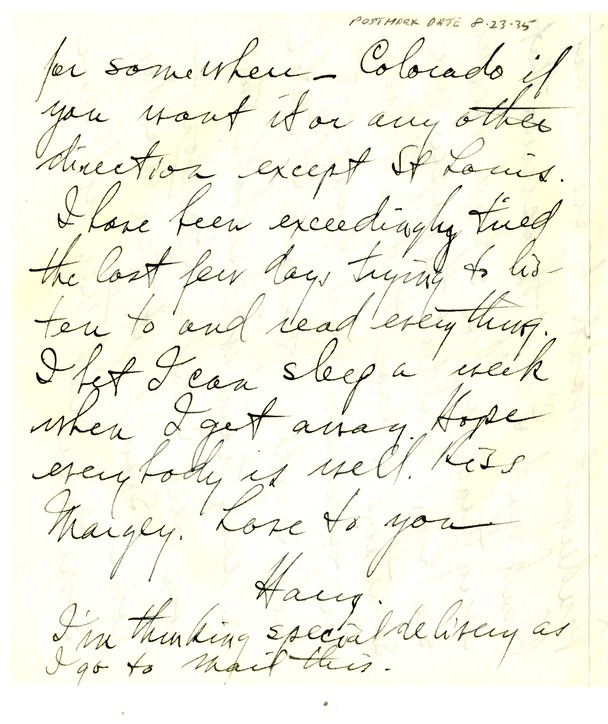 POSTMARK DATE 8-23-35
for somewhere - Colorado if
you want it or any other
direction except St Louis.
I have been exceedingly tired
the last few days trying to lis-
ten to and read everything.
I bet I can sleep a week
when I get away. Hope
everybody is well. Kiss
Margey. Love to you
Harry.
I'm thinking special delivery as
I go to mail this.